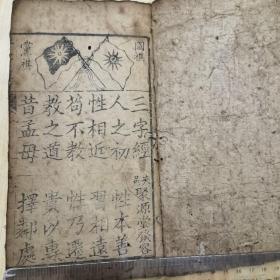 國旗
黨旗
三字經
聚源堂
人之初 性本善
性相近 習相遠
苟不教 性乃遷
教之道 貴以專
昔孟母 擇鄰處